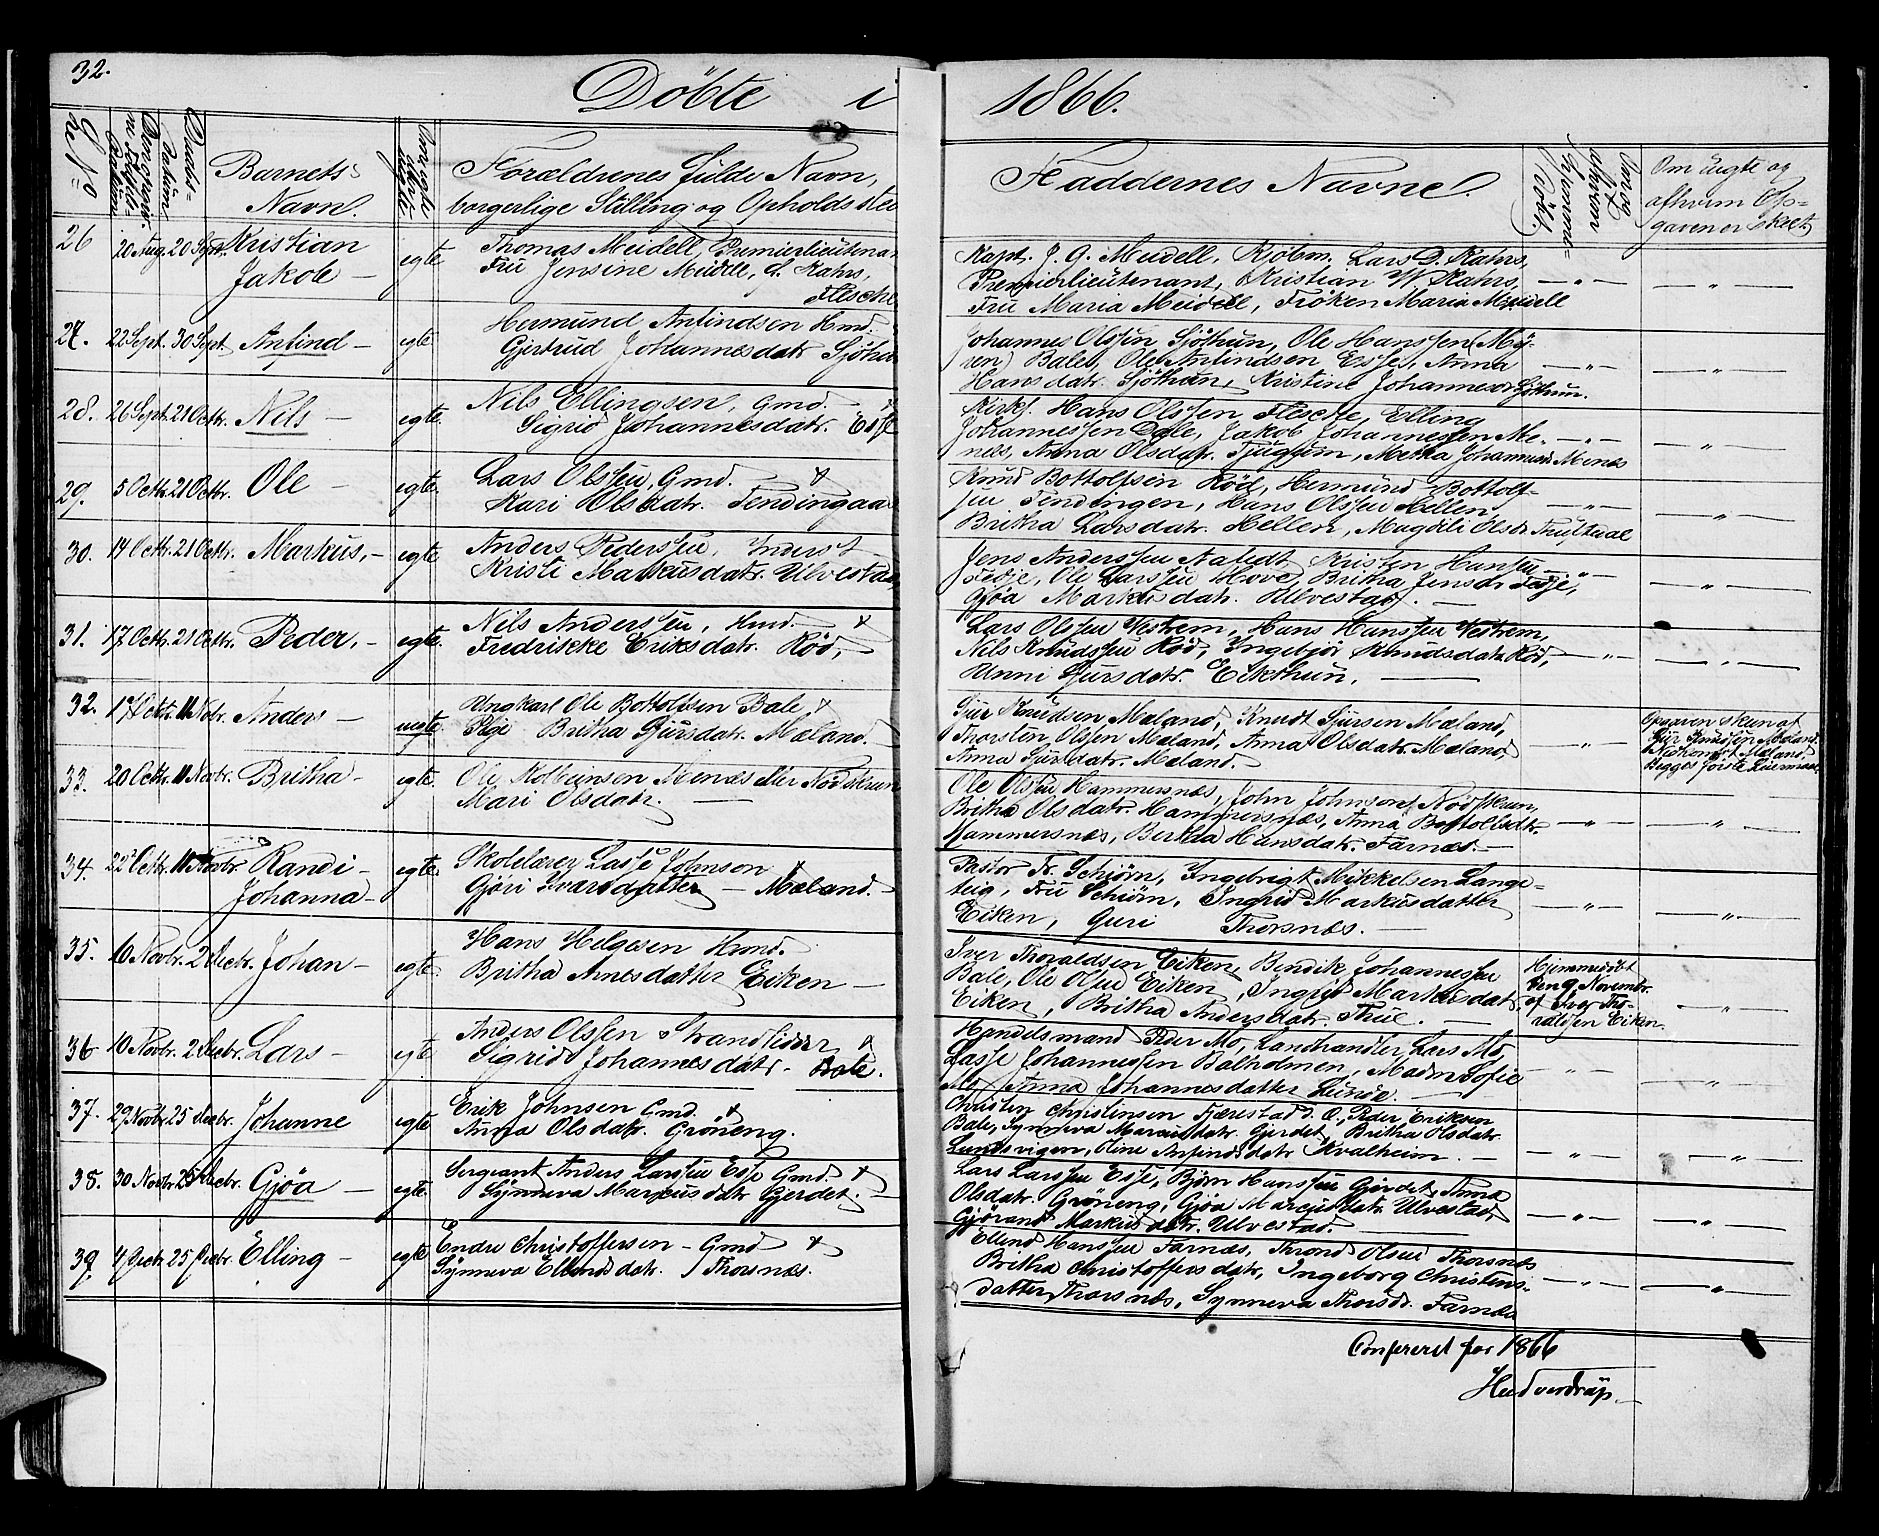 32.
Döbte i 1866.
Barnets
Navn.
Forældrenes fulde Navn,
borgerlige Stilling og Opholdssted
Faddernes Navne.
Om uægte og
afhvem Op-
gaven er skeet
26 20 Aug. 20 Sept. Kristian
Jakob —
egte
Thomas Meidell, Premierlieutenant
Fru Jensine Meidell, f. Kahrs,
Flesche
Kapt. J. G. Meidell, Kjöbm. Lars D. Kahrs,
Premierlieutenant, Kristian W. Kahrs,
Fru Maria Meidell, Fröken Maria Meidell
— " —
27. 22 Sept. 30 Sept. Anfind —
egte
Hermund Anfindsen Hmd.
Gjertrud Johannesdatr. Sjöthun
Johannes Olssen Sjöthun, Ole Hanssen My-
ren) Bale), Ole Anfindsen Esse, Anna
Hansdatr. Sjöthun, Kristine Johannesdr Sjöthun.
— " —
28. 26 Sept. 21 Octr. Nils —
egte.
Nils Ellingsen, Gmd.
Sigrid Johannesdatr. Esse
Kirks. Hans Olssen Flesche, Elling
Johannessen Dale, Jakob Johannessen Me-
nes, Anna Olsdatr. Tjugum, Metha Johannesd. Menes
— " —
29. 5 Octr. 21 Octr. Ole —
egte.
Lars Olssen, Gmd.
Kari Olsdatr. Fendingaas
Knud Bottolfsen Röd, Hermund Bottolf-
sen Fendingen, Hans Olssen Hellen,
Britha Larsdatr. Hellen, Magdli Olsdr
— " —
30. 14 Octr. 21 Octr. Markus, —
egte
Anders Pederssen, Inderst
Kristi Markusdatr. Ulvestad,
Jens Anderssen Nalidt, Kristen Hanssen
Fedje, Ole Larssen Hove, Britha Jensdr Fedje,
Gjöa Markusdatr. Ulvestad. —
— " —
31. 17 Octr. 21 Octr. Peder, —
egte.
Nils Anderssen, Hmd.
Fredrikke Eriksdatr. Röd,
Lars Olssen Vestrem, Hans Hanssen Vestrem,
Nils Knudssen Röd, Ingebjör Knudsdatr. Röd,
Unni Sjursdatr. Eikthun. —
— " —
32. 17 Octr. 11 Nobr. Anders —
uegte
Ungkarl Ole Bottolfsen Bale
Pige Britha Sjursdatr. Mæland.
Sjur Knudsen Mæland, Knudt Sjursen Mæland,
Thorsten Olssen Mæland, Anna Olsdatr. Mæland,
Anna Sjursdatr. Mæland.
— " —
Opgaven skeet af
Sjur Knudsen Mæland.
Begges förste Leiermaal.
33. 20 Octr. 11 Novbr. Britha —
egte.
Ole Kolbeinsen Menæs eller Nödskrun
Mari Olsdatr. —
Ole Olssen Hammersnæs, John Johnsen Nödskrun,
Britha Olsdatr. Hammersnæs, Anna Bottolfsdtr.
Hammersnæs, Bertha Hansdatr. Farnæs. —
— " —
34. 22 Octr. 11 Novbr. Randi —
Johanna —
egte.
Skolelærer Lasse Johnson
Gjöri Ivarsdatter — Mæland. —
Pastor Fr. Schiörn, Ingebrigt Mikkelsen Lange-
teig, Fru Schiörn, Ingrid Markusdatter
Eiken, Guri Thorsnæs. —
— " —
35. 6 Novbr. 2 Decbr. Johan —
egte.
Hans Helgesen Hmd.
Britha Arnesdatter Eiken —
Iver Thoraldsen Eiken, Bendik Johannessen
Bale, Ole Olsen Eiken, Ingrid Markusdatr.
Eiken, Britha Andersdatr. Thue. —
Hjemmedöbt
den 9. Novembr.
af Iver Tho-
raldsen Eiken
— " —
36 10 Novbr. 2 Decbr. Lars —
egte.
Anders Olssen Strandlidder
Sigrid Johannesdatr. — Bale.
Handelsmand Peder Mo, Landhandler Lars Mo,
Lasse Johannessen Balholmen, Madm Sofie
Mo, Anna Johannesdatter Lunde. —
— " —
37. 29 Novbr. 25 Decbr. Johanne
egte
Erik Johnsen Gmd.
Anna Olsdatr. Gröneng.
Christen Christensen Fjærestad d. Æ., Peder Eriksen
Bale, Synneva Marcusdatr. Gjerdet, Britha Olsdatr.
Lundsvigen, Oline Anfindsdatr Kvalheim. —
— " —
38. 30 Novbr 25 Decbr. Gjöa —
egte.
Sergeant Anders Larssen Esse Gmd
Synneva Marcusdatr Gjerdet. —
Lars Larssen Esse, Björn Hanssen Gjerdet, Anna
Olsdatr. Gröneng, Gjöa Marcusdatr. Ulvestad,
Gjörand Markusdatr. Ulvestad. —
— " —
39. 4 Decbr. 25 Decbr. Elling —
egte
Endre Christoffersen — Gmd
Synneva Ellendsdatr. Thorsnæs.
Ellend Hanssen Farnæs, Thrond Olsen Thorsnæs
Britha Christoffersdatr, Ingeborg Christens-
datter Thorsnæs, Synneva Thorsdr. Farnæs
— " —
Confereret for 1866